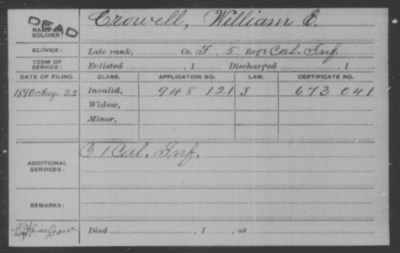 DEAD
NAME OF SOLDIER: Crowell, William E.
SERVICE: Late rank, Co. F, 5 Reg't Cal. Inf.
TERM OF SERVICE: Enlisted , 1 Discharged , 1
DATE OF FILING. CLASS. APPLICATION NO. LAW. CERTIFICATE NO.
1890 Aug. 22 Invalid, 948 121 J 673 041
Widow,
Minor,
ADDITIONAL SERVICES: C 1 Cal. Inf.
REMARKS:
Died , 1 , at